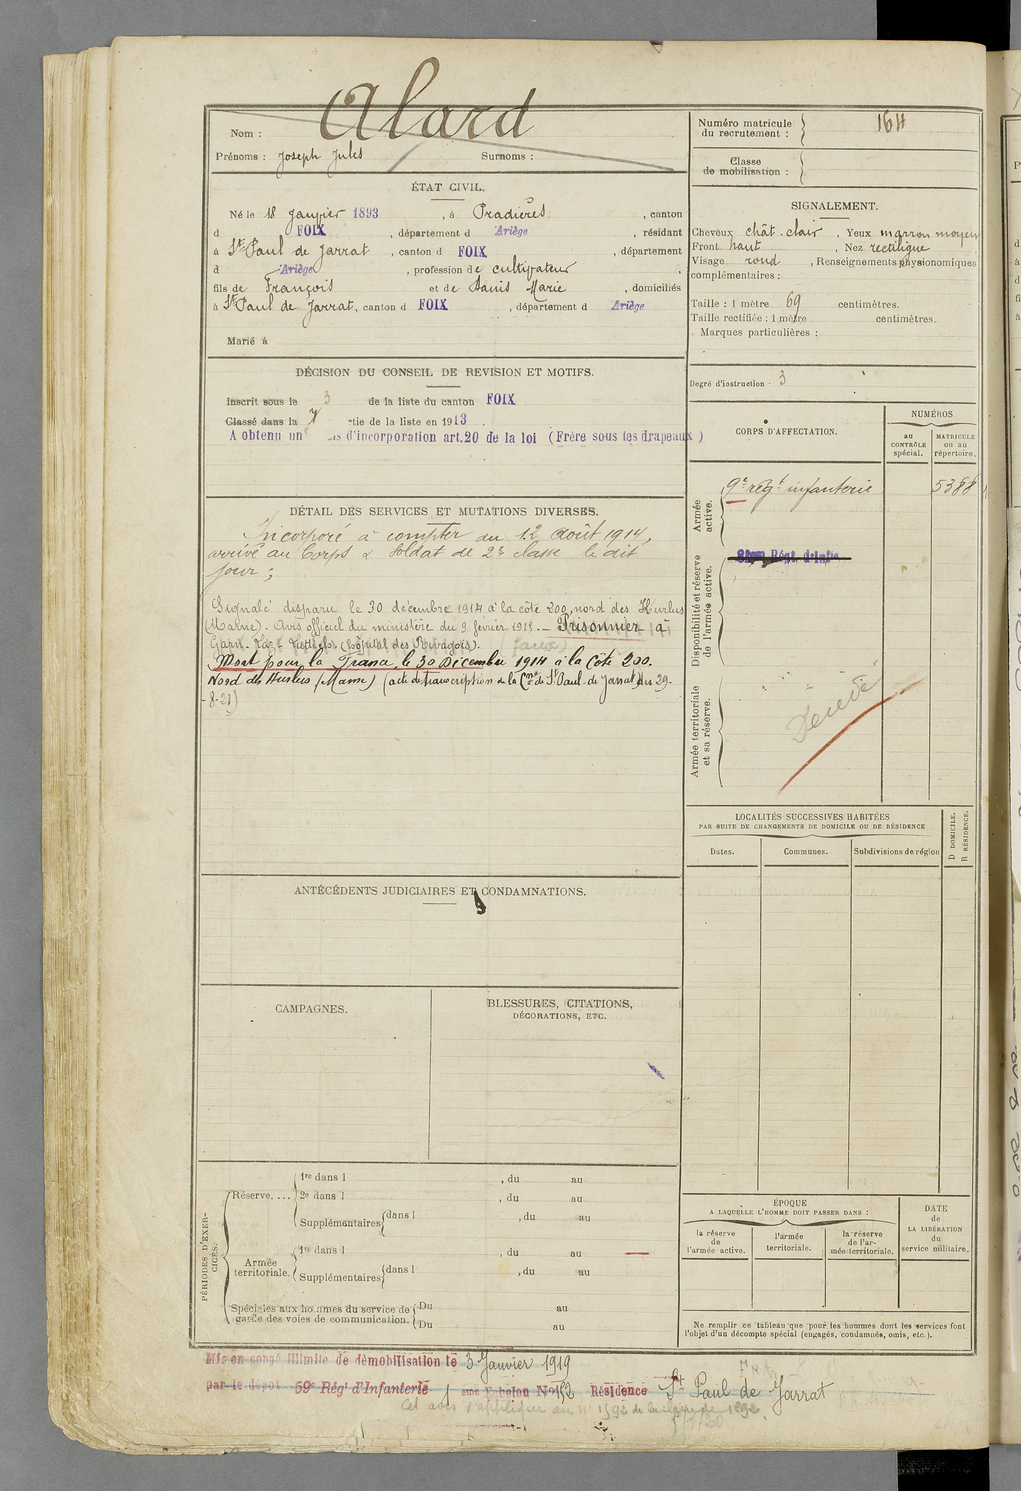 Nom : Alard
Prénoms : Joseph Jules Surnoms :
Numéro matricule du recrutement : 164
Classe de mobilisation :
ÉTAT CIVIL.
Né le 18 Janvier 1893, à Pradières, canton
d FOIX, département d Ariège, résidant
à St Paul de Jarrat, canton d FOIX, département
d Ariège, profession de cultivateur,
fils de François et de Danis Marie, domiciliés
à St Paul de Jarrat, canton d FOIX, département d Ariège
Marié à
SIGNALEMENT.
Cheveux chât. clair. Yeux marron moyen
Front haut, Nez rectiligne
Visage rond, Renseignements physionomiques
complémentaires :
Taille : 1 mètre 69 centimètres.
Taille rectifiée : 1 mètre centimètres.
Marques particulières :
Degré d'instruction : 3
DÉCISION DU CONSEIL DE REVISION ET MOTIFS.
Inscrit sous le 3 de la liste du canton FOIX
Classé dans la tie de la liste en 1913.
A obtenu un is d'incorporation art. 20 de la loi (Frère sous les drapeaux)
DÉTAIL DES SERVICES ET MUTATIONS DIVERSES.
Incorporé à compter du 12 Août 1914,
arrivé au Corps & Soldat de 2e classe le dit
jour ;
Signalé disparu le 30 décembre 1914 à la côte 200, nord des Hurlus
(Marne). Avis officiel du ministère du 9 février 1915. - Prisonnier à
(hôpital des Rivages). (faux)
Mort pour la France le 30 Décembre 1914 à la Côte 200.
Nord des Hurlus (Marne) (acte de transcription de la Cne de St Paul de Jarrat du 29-
-8-21)
CORPS D'AFFECTATION.
NUMÉROS
au CONTRÔLE spécial.
MATRICULE ou au répertoire.
Armée active.
9e régt infanterie 5388
Disponibilité et réserve de l'armée active.
Régt. d'Infie
Armée territoriale et sa réserve.
Décédé
LOCALITÉS SUCCESSIVES HABITÉES
PAR SUITE DE CHANGEMENTS DE DOMICILE OU DE RÉSIDENCE
Dates. Communes. Subdivisions de région
D DOMICILE.
R RÉSIDENCE.
ANTÉCÉDENTS JUDICIAIRES ET CONDAMNATIONS.
CAMPAGNES.
BLESSURES, CITATIONS,
DÉCORATIONS, ETC.
PÉRIODES D'EXERCICES.
Réserve.... 1re dans l , du au
2e dans l , du au
Supplémentaires dans l , du au
Armée territoriale. 1re dans l , du au
Supplémentaires dans l , du au
Spéciales aux hommes du service de Du au
garde des voies de communication. Du au
ÉPOQUE
A LAQUELLE L'HOMME DOIT PASSER DANS :
la réserve de l'armée active.
l'armée territoriale.
la réserve de l'armée territoriale.
DATE de LA LIBÉRATION du service militaire.
Ne remplir ce tableau que pour les hommes dont les services font
l'objet d'un décompte spécial (engagés, condamnés, omis, etc.).
Mis en congé illimité de démobilisation le 3 Janvier 1919
par le dépôt 59e Régt d'Infanterie 1 eme Echelon No 152 Résidence St Paul de Jarrat